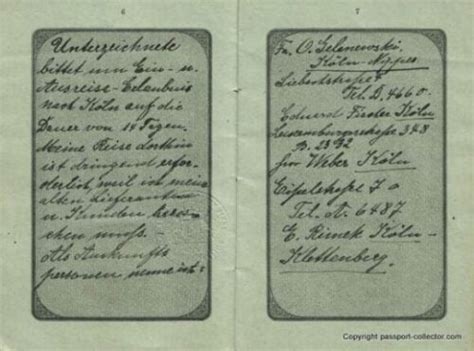 6
Unterzeichnete
bittet um Ein- u.
Ausreise-Erlaubnis
nach Köln auf die
Dauer von 14 Tagen.
Meine Reise dorthin
ist dringend erfor-
derlich, weil ich mein
alten Lieferanten
u. Kunden besu-
chen muß.
Als Auskunfts
personen nenne ich:
7
Fa. O. Selenewski
Köln-Nippes
Tel. A. 4660
Eduard Köln
Luxemburgerstraße 348
B. 2392
Weber Köln
Eifelstraße 70
Tel. A. 6487
E. Rimek Köln-
Klettenberg.
Copyright passport-collector.com